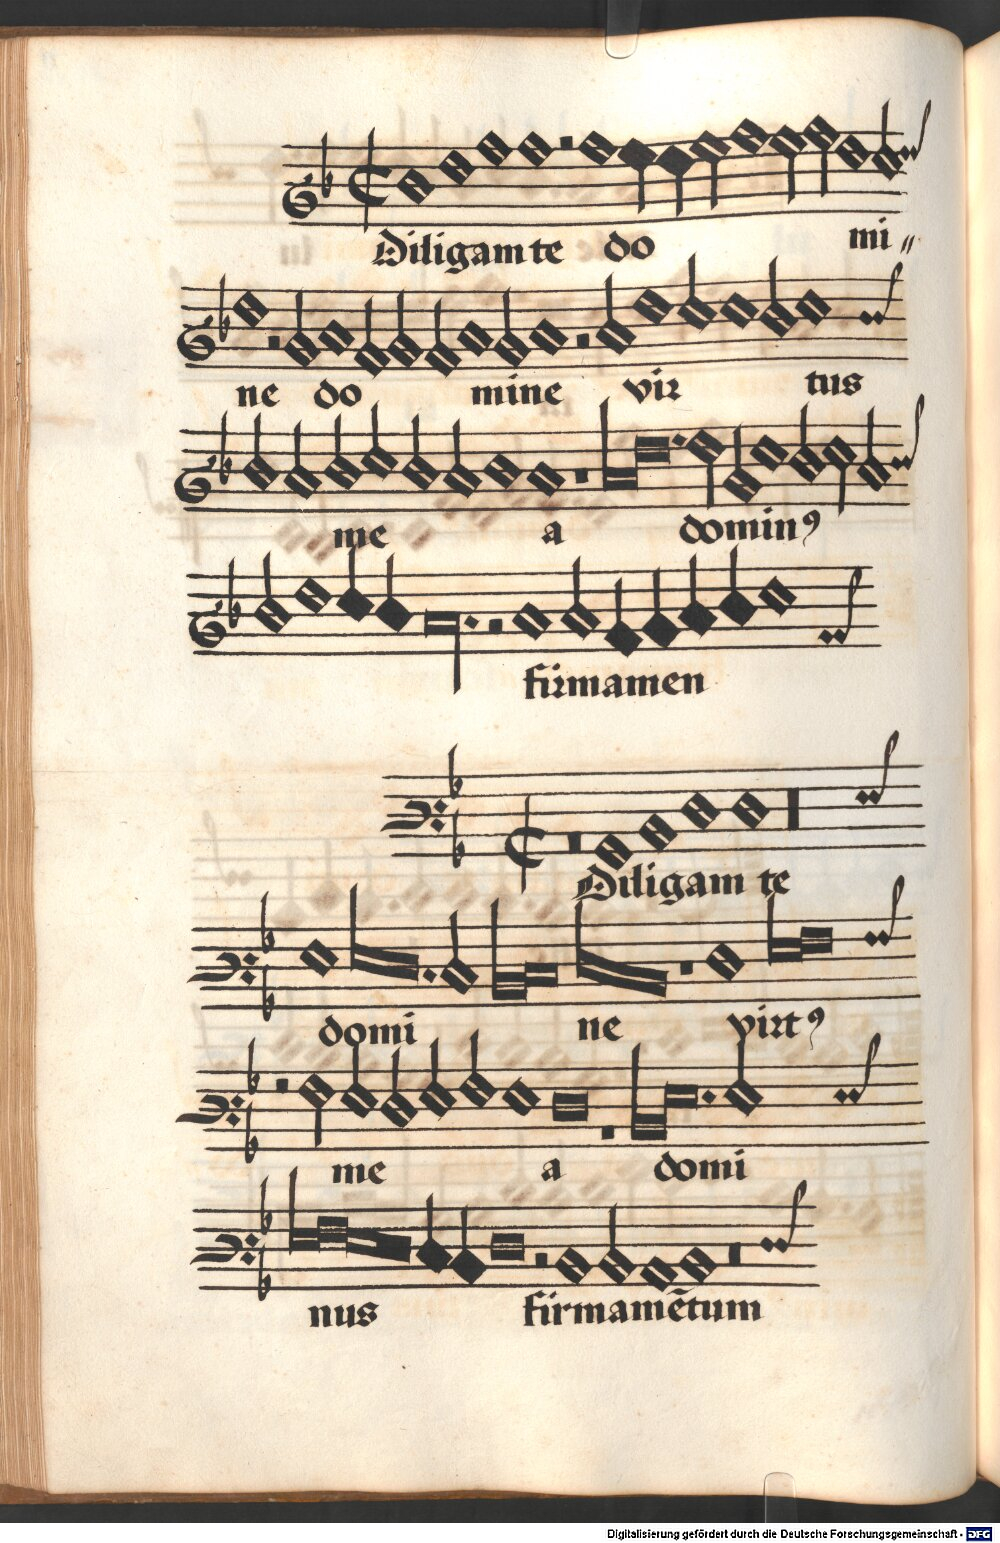 Diligam te do mi〃
ne do mine vir tus
me a domin⁹
firmamen
Diligam te
domi ne virt⁹
me a domi
nus firmamẽtum
Digitalisierung gefördert durch die Deutsche Forschungsgemeinschaft - DFG